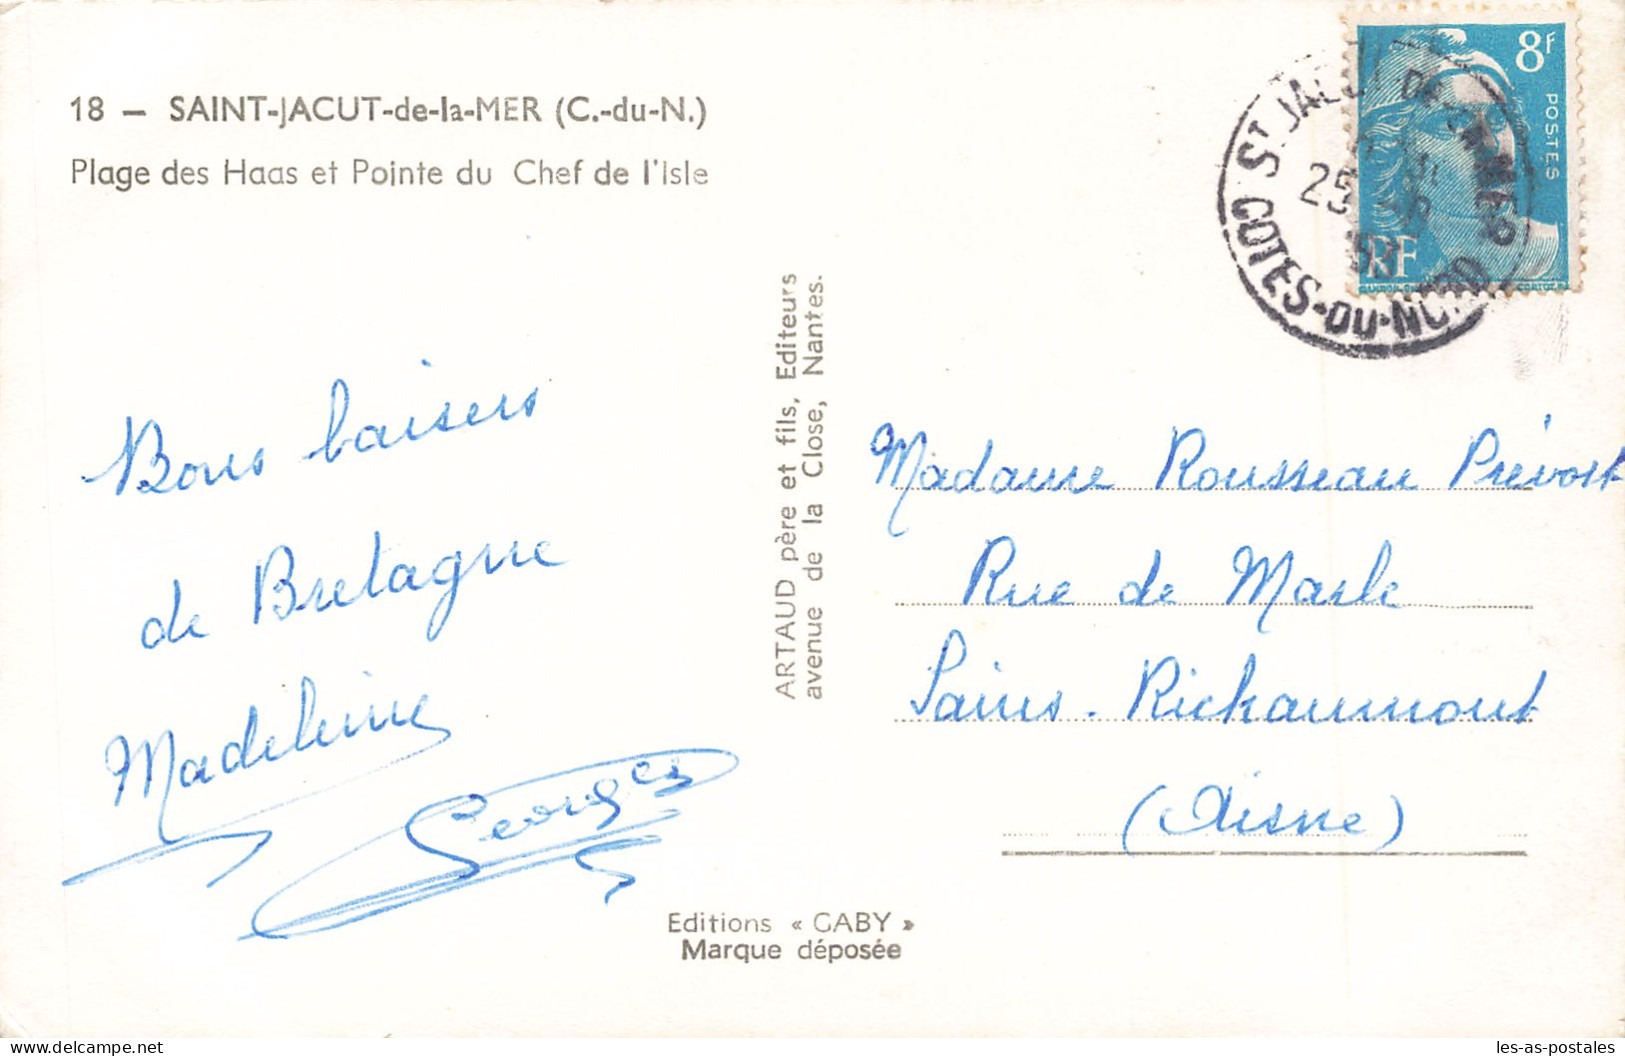 18 — SAINT-JACUT-de-la-MER (C.-du-N.)
Plage des Haas et Pointe du Chef de l'Isle
Bons baisers
de Bretagne
Madeleine
Georges
ARTAUD père et fils, Editeurs
avenue de la Close, Nantes.
Editions « GABY »
Marque déposée
8F
POSTES
RF
ST JACUT DE LA MER
25
53
COTES-DU-NORD
Madame Rousseau Prévost
Rue de Marle
Sains-Richaumont
(Aisne)
les-as-postales
delcampe.net